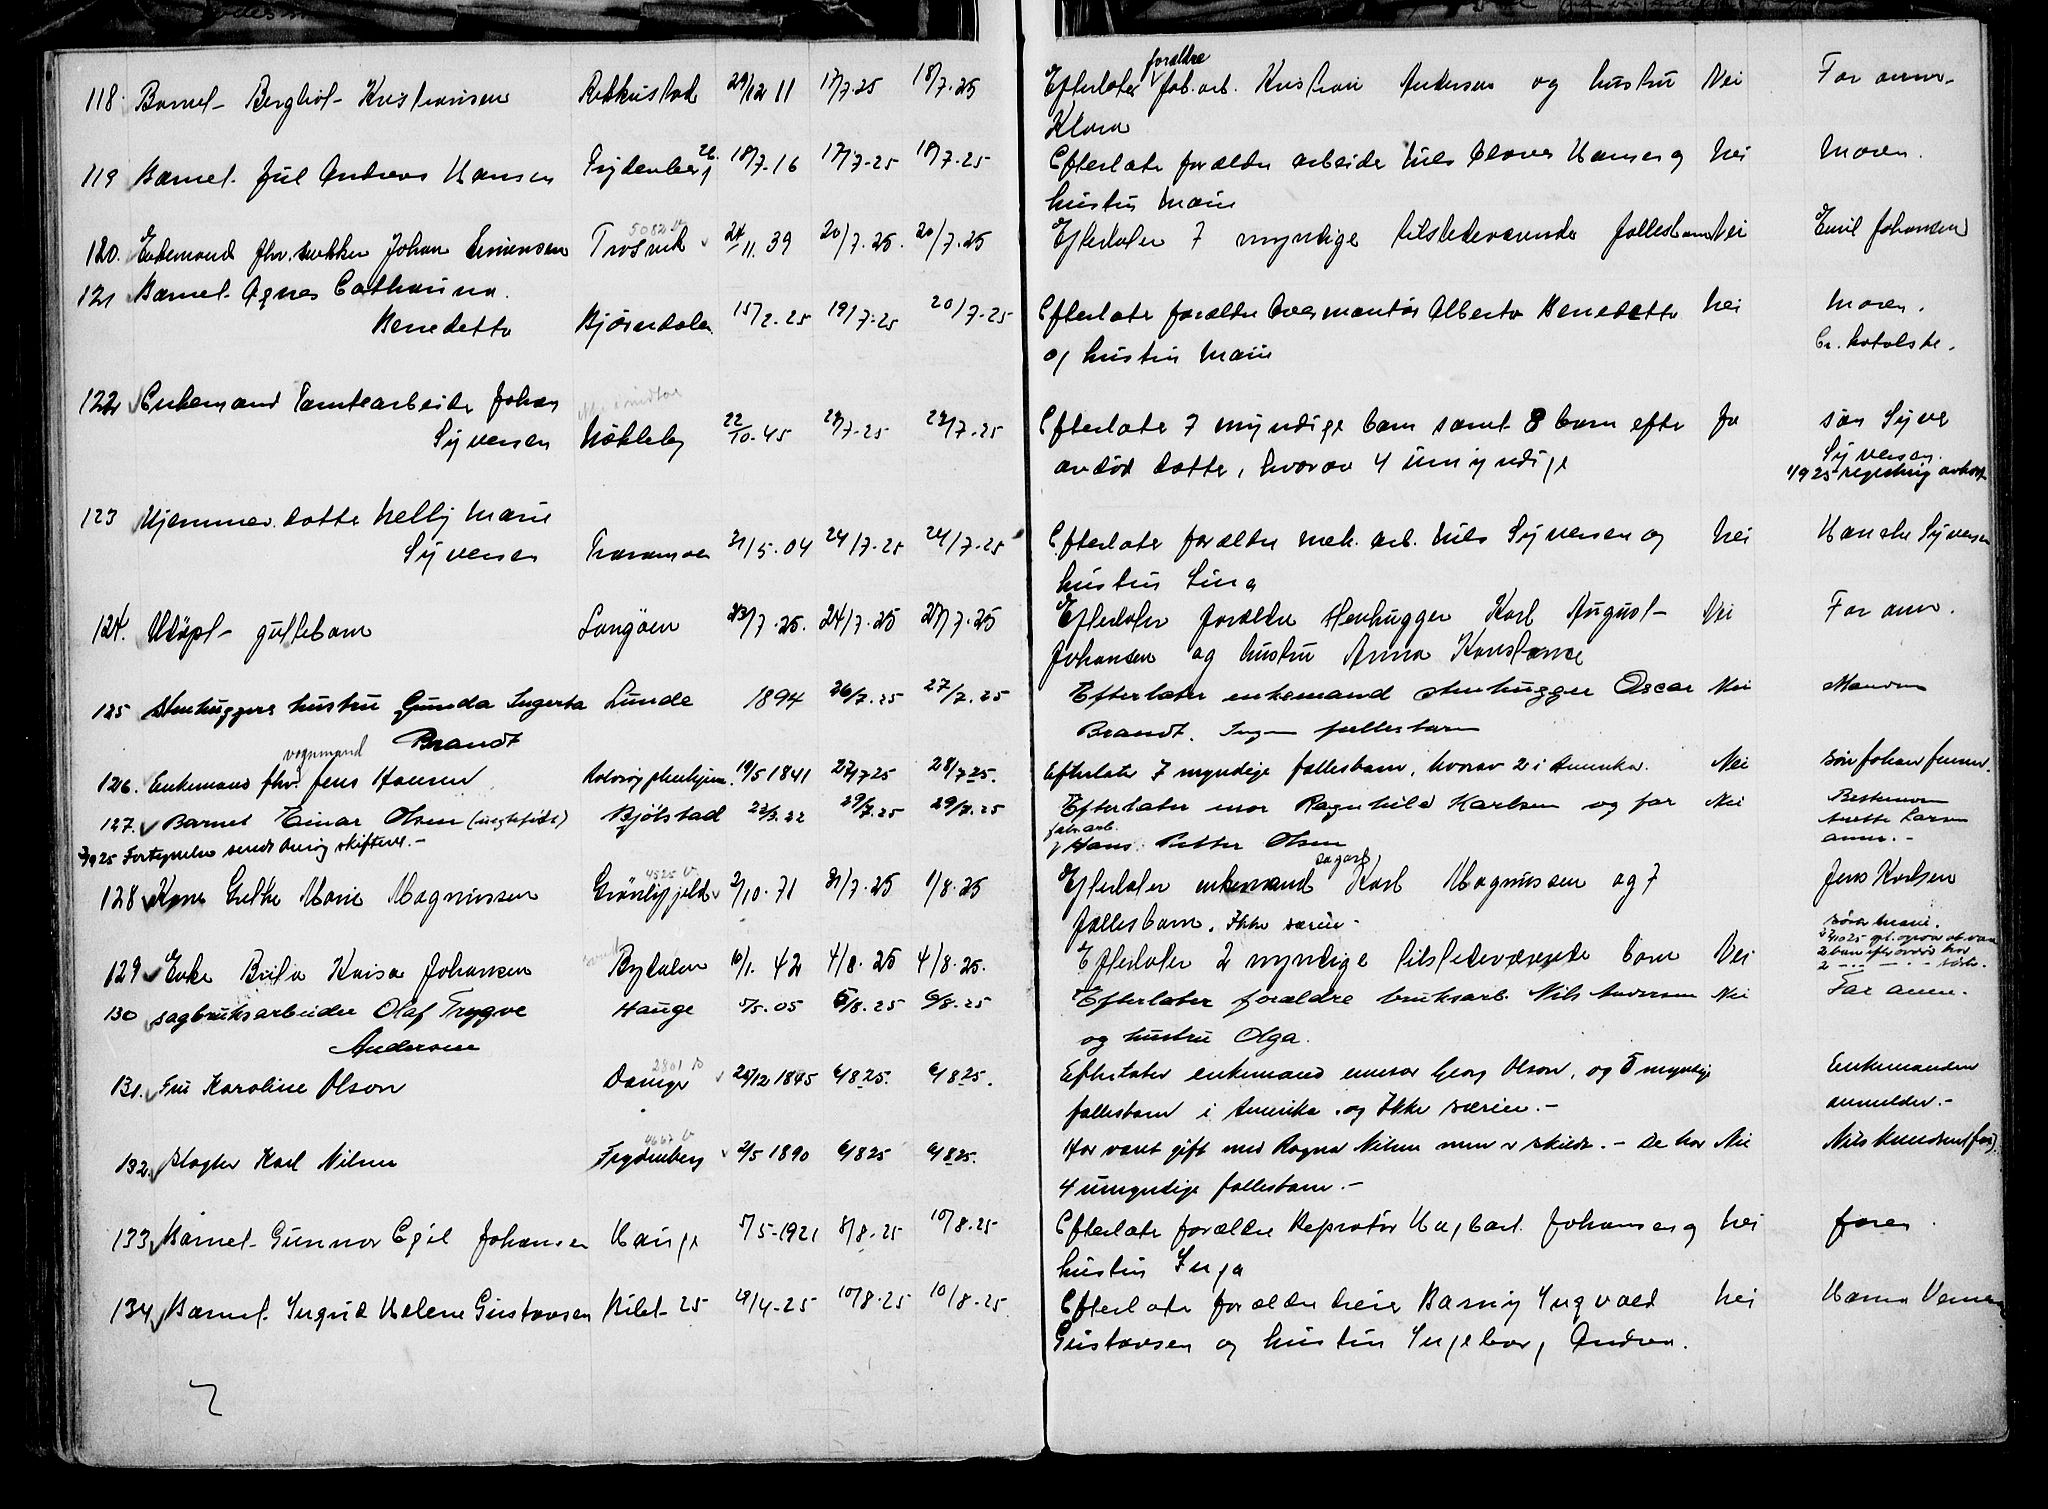 118 Barnet Bergliot Kristiansen 29/12 11 17/7-25 18/7-25 Efterlater forældre fab. arb. Kristian Andersen og hustru Nei Far anm.
Klara
119 Barnet Juel Andreas Hansen Frydenberg 18/7-16 17/7-25 18/7-25 Efterlater forældre arbeider Nils Hansen og Nei Moren.
hustru Marie
120. Enkemand fhv. snekker Johan Simensen Trosvik 5082 24/11. 39 20/7-25. 20/7-25 Efterlater 7 myndige tilstedeværende fellesbarn Nei Emil Johansen
121 Barnet Agnes Catharina
Benedetto Bjørndalen 15/2-25 19/7-25 20/7-25 Efterlater forældre overmontør Alberto Benedetto Nei Moren.
og hustru Marie
122 Enkemand Tomtearbeider Johan
Syversen Nøkleby 22/10-45 22/7-25 Efterlater 7 myndige barn samt 8 barn efter Ja søn Syver
avdød datter, hvorav 4 umyndige Syversen.
123 Hjemmev. datter Nelly Marie
Syversen Traraveien 21/5-04 24/7-25 24/7-25 Efterlater forældre mek. arb. Nils Syversen og Nei Hanche Syversen
hustru Lina
124. Udøpt guttebarn Langøen 23/7-25. 24/7-25 27/7-25 Efterlater forældre stenhugger Karl August Nei Far anm.
Johansen og hustru Anna Konstance
125 Stenhuggers hustru Gunda Ingerta Lunde 1894 26/7-25 27/7-25 Efterlater enkemand stenhugger Oscar Nei Manden
Brandt Brandt. Ingen fællesbarn
126. Enkemand fhv. vognmand Jens Hansen 19/5 1841 27/7 25 28/7 25. Efterlater 7 myndige fællesbarn, hvorav 2 i Amerika. Nei søn Johan Jensen.
127. Barnet Einar Olsen (uegtefødt) Bjølstad 22/3-22 29/7-25 29/7-25 Efterlater mor Ragnhild Karlsen og far Nei Bestemor
fabr. arb. Hans Petter Olsen Anette Larsen anm.-
1925 Fortegnelse sendt Onsøy skifteret.-
128 Kone Grethe Marie Magnussen Grönlifjeld 4525 2/10-71 31/7-25 1/8-25 Efterlater enkemand sagarb. Karl Magnussen og 7 Jens Karlsen
fællesbarn. Ikke særeie-
129 Enke Brita Kaisa Johansen Rydalen 16/1. 42 4/8-25 4/8-25. Efterlater 2 myndige tilstedeværende barn Nei
130 sagbruksarbeider Olaf Trygve Hauge 5/5-05 5/8-25 6/8-25 Efterlater forældre bruksarb. Nils Andersen Nei Far anm.
Andersen og hustru Olga.
131. Fru Karoline Olson Damyr 2801 25/12 1845 6/8 25. 6/8 25. Efterlater enkemand murer Georg Olson, og 5 myndige Enkemanden
fællesbarn i Amerika, og Ikke særeie.- anmelder.-
132. slagter Karl Nilsen Frydenberg 4667 2/5 1890 6/8 25 6/8 25. Har været gift med Ragna Nilsen men er skildt.- De har Nei Nils Knudsen (far).
4 umyndige fællesbarn.-
133 Barnet Gunnar Egil Johansen Hauge 5/5-1921 8/8-25 10/8-25 Efterlater forældre Reprotør Hagbart Johansen og Nei faren.
hustru Inga
134 Barnet Ingrid Helene Gustavsen Kilet 25 19/4-25 10/8-25 10/8-25 Efterlater forældre dreier Barny Ingvald Nei
Gustavsen og hustru Ingeborg Andrea.